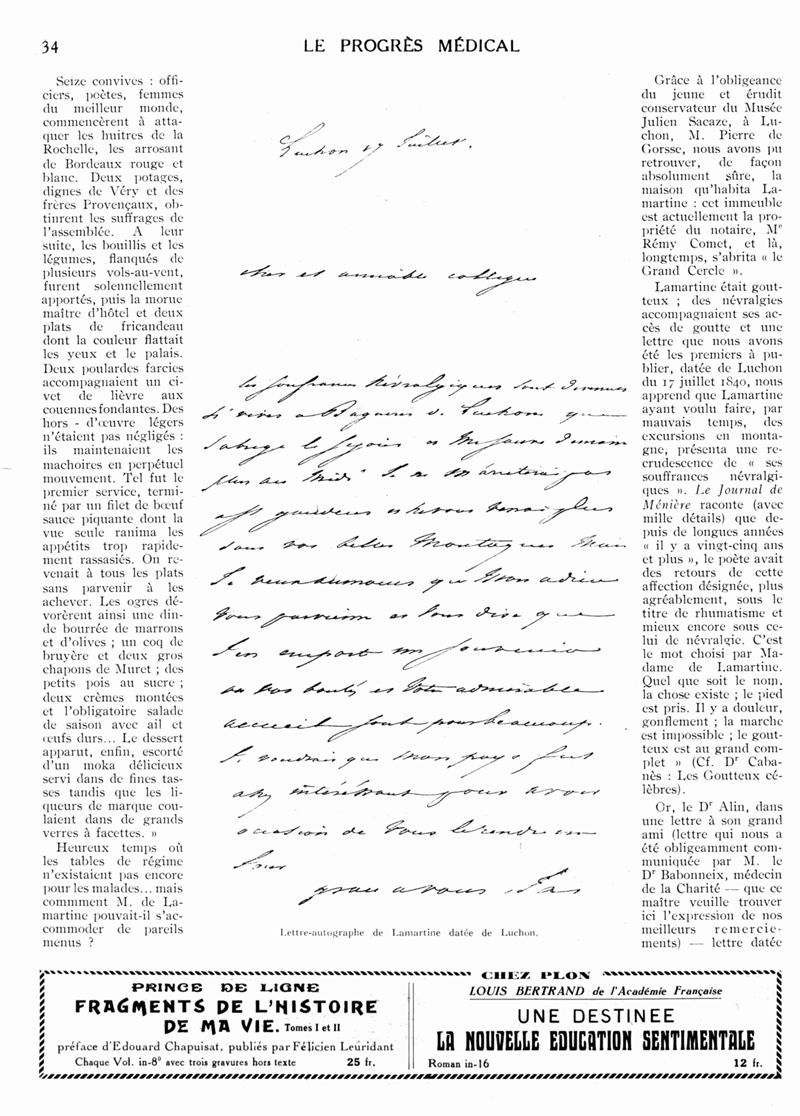 34
LE PROGRÈS MÉDICAL
Seize convives : offi-
ciers, poètes, femmes
du meilleur monde,
commencèrent à atta-
quer les huitres de la
Rochelle, les arrosant
de Bordeaux rouge et
blanc. Deux potages,
dignes de Véry et des
frères Provençaux, ob-
tinrent les suffrages de
l'assemblée. A leur
suite, les bouillis et les
légumes, flanqués de
plusieurs vols-au-vent,
furent solennellement
apportés, puis la morue
maître d'hôtel et deux
plats de fricandeau
dont la couleur flattait
les yeux et le palais.
Deux poulardes farcies
accompagnaient un ci-
vet de lièvre aux
couennes fondantes. Des
hors - d'œuvre légers
n'étaient pas négligés :
ils maintenaient les
machoires en perpétuel
mouvement. Tel fut le
premier service, termi-
né par un filet de bœuf
sauce piquante dont la
vue seule ranima les
appétits trop rapide-
ment rassasiés. On re-
venait à tous les plats
sans parvenir à les
achever. Les ogres dé-
vorèrent ainsi une din-
de bourrée de marrons
et d'olives ; un coq de
bruyère et deux gros
chapons de Muret ; des
petits pois au sucre ;
deux crèmes montées
et l'obligatoire salade
de saison avec ail et
œufs durs... Le dessert
apparut, enfin, escorté
d'un moka délicieux
servi dans de fines tas-
ses tandis que les li-
queurs de marque cou-
laient dans de grands
verres à facettes. »
Heureux temps où
les tables de régime
n'existaient pas encore
pour les malades... mais
commment M. de La-
martine pouvait-il s'ac-
commoder de pareils
menus ?
Luchon 17 Juillet.
cher et aimable collègue
les souffrances névralgiques sont devenues
si vives a Bagneres de Luchon que
j'abrege le sejour et me sauve demain
plus au midi Je ne m'arreterai pas
a St gaudens et ne vous verrai plus
dans vos belles Montagnes Mais
Je veux du moins que Mon adieu
Vous parvienne et Vous dise que
J'en emporte un souvenir
de vos bontés et Votre admirable
accueil sont pour beaucoup.
Je voudrais que mon pays fut
assez intéressant pour avoir
occasion de Vous le rendre un
Jour
Lettre-autographe de Lamartine datée de Luchon.
Grâce à l'obligeance
du jeune et érudit
conservateur du Musée
Julien Sacaze, à Lu-
chon, M. Pierre de
Gorsse, nous avons pu
retrouver, de façon
absolument sûre, la
maison qu'habita La-
martine : cet immeuble
est actuellement la pro-
priété du notaire, Me
Rémy Comet, et là,
longtemps, s'abrita « le
Grand Cercle ».
Lamartine était gout-
teux ; des névralgies
accompagnaient ses ac-
cès de goutte et une
lettre que nous avons
été les premiers à pu-
blier, datée de Luchon
du 17 juillet 1840, nous
apprend que Lamartine
ayant voulu faire, par
mauvais temps, des
excursions en monta-
gne, présenta une re-
crudescence de « ses
souffrances névralgi-
ques ». Le Journal de
Ménière raconte (avec
mille détails) que de-
puis de longues années
« il y a vingt-cinq ans
et plus », le poète avait
des retours de cette
affection désignée, plus
agréablement, sous le
titre de rhumatisme et
mieux encore sous ce-
lui de névralgie. C'est
le mot choisi par Ma-
dame de Lamartine.
Quel que soit le nom,
la chose existe ; le pied
est pris. Il y a douleur,
gonflement ; la marche
est impossible ; le gout-
teux est au grand com-
plet » (Cf. Dr Caba-
nès : Les Goutteux cé-
lèbres).
Or, le Dr Alin, dans
une lettre à son grand
ami (lettre qui nous a
été obligeamment com-
muniquée par M. le
Dr Babonneix, médecin
de la Charité — que ce
maître veuille trouver
ici l'expression de nos
meilleurs remercie-
ments) — lettre datée
PRINCE DE LIGNE
FRAGMENTS DE L'HISTOIRE
DE MA VIE. Tomes I et II
préface d'Edouard Chapuisat, publiés par Félicien Leuridant
Chaque Vol. in-8° avec trois gravures hors texte 25 fr.
CHEZ PLON
LOUIS BERTRAND de l'Académie Française
UNE DESTINEE
LA NOUVELLE EDUCATION SENTIMENTALE
Roman in-16 12 fr.